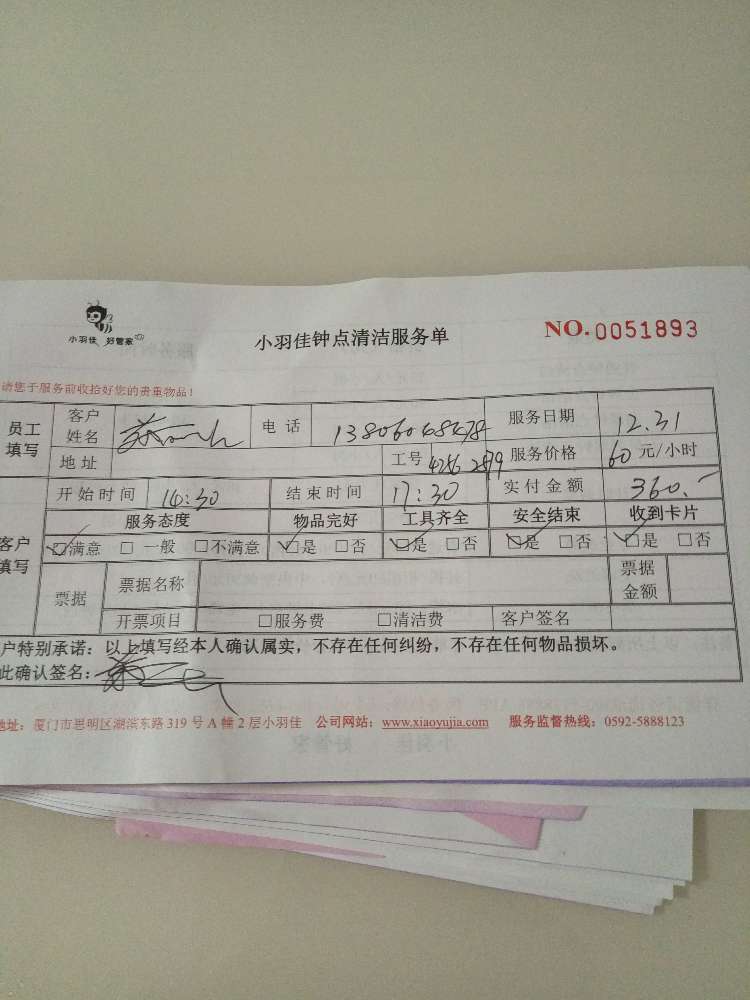 小羽佳 好管家
小羽佳钟点清洁服务单
NO.0051893
请您于服务前收拾好您的贵重物品！
员工填写 客户姓名 电话 服务日期 12.31
地址 工号 4256 2879 服务价格 60 元/小时
客户填写 开始时间 14:30 结束时间 17:30 实付金额 360.-
服务态度 物品完好 工具齐全 安全结束 收到卡片
☑满意 □ 一般 □不满意 ☑是 □否 ☑是 □否 ☑是 □否 ☑是 □否
票据 票据名称 票据金额
开票项目 □服务费 □清洁费 客户签名
户特别承诺：以上填写经本人确认属实，不存在任何纠纷，不存在任何物品损坏。
此确认签名：
地址：厦门市思明区湖滨东路 319 号 A 幢 2 层小羽佳 公司网站：www.xiaoyujia.com 服务监督热线：0592-5888123